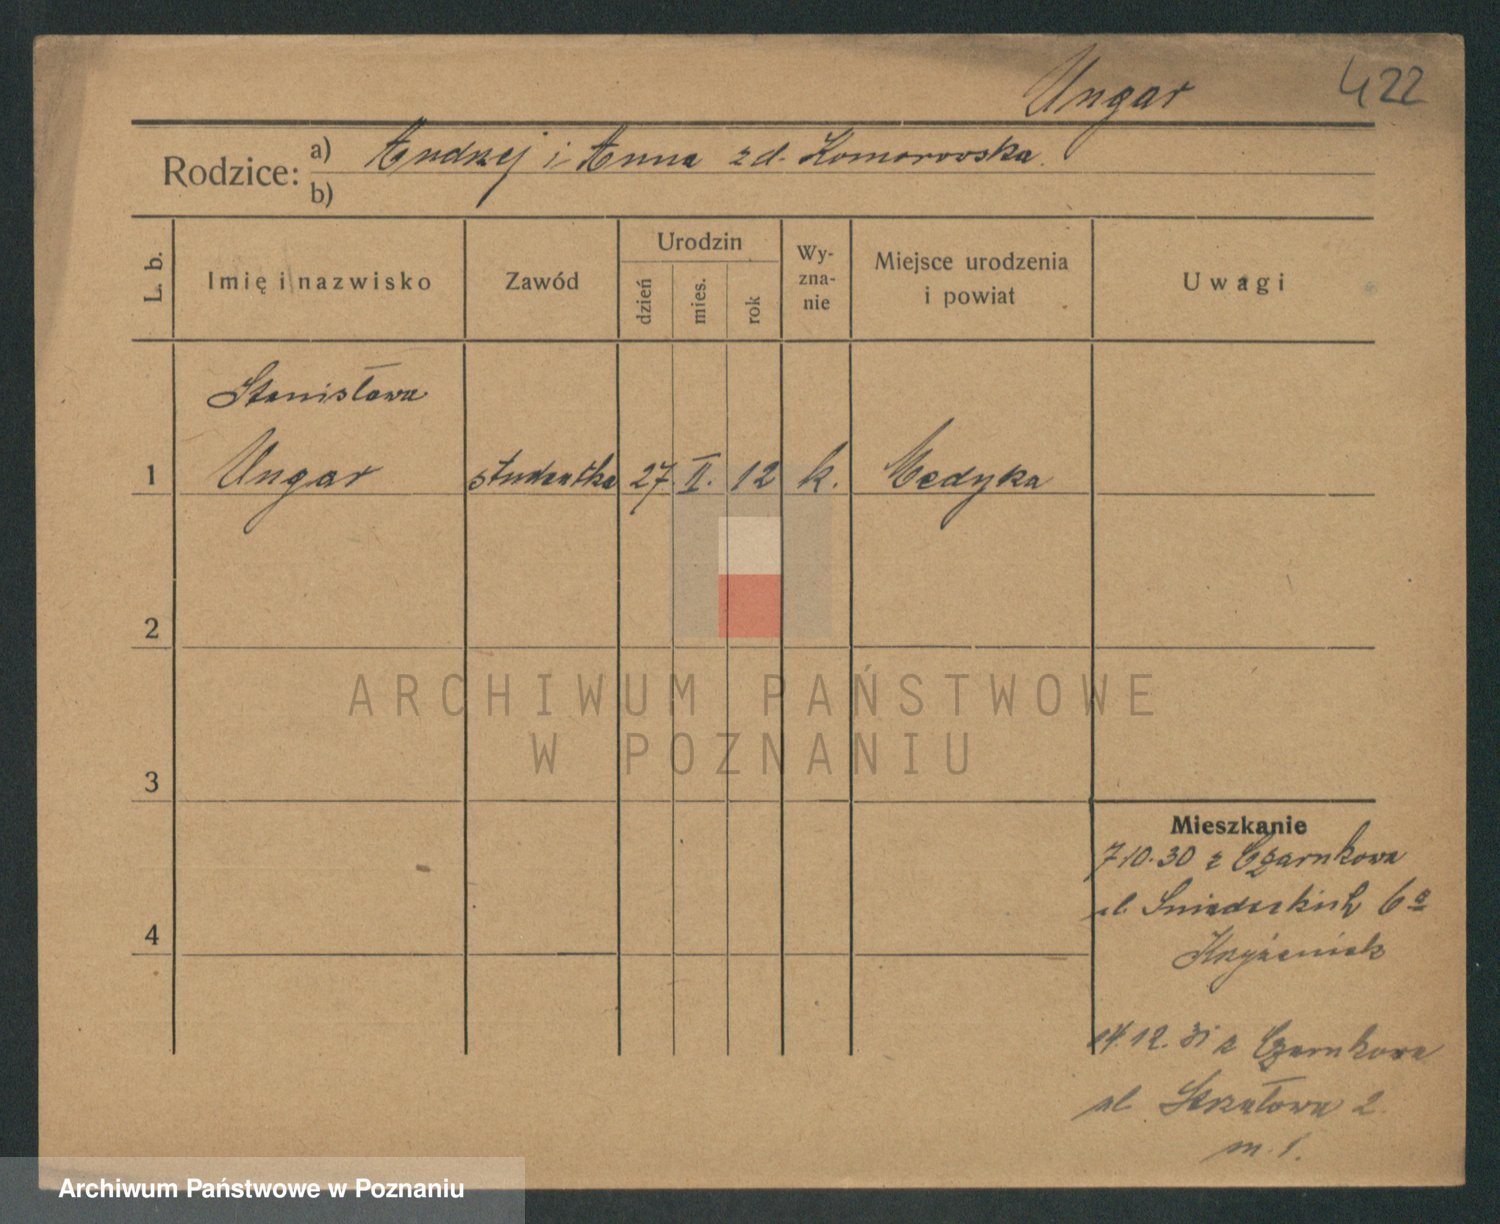 Ungar 422
Rodzice: a) Andrzej i Anna z d. Komorowska.
b)
L. b. Imię i nazwisko Zawód Urodzin dzień mies. rok Wy-zna-nie Miejsce urodzenia i powiat Uwagi
Stanisława
1 Ungar studentka 27. II. 12 k. Medyka
2
ARCHIWUM PAŃSTWOWE
W POZNANIU
3
Mieszkanie
7.10.30 z Czarnkowa
ul. Sniadeckich 6a
4
Krzyżaniak
14.12.31 z Czarnkowa
ul. Strzałowa 2.
m. 1.
Archiwum Państwowe w Poznaniu